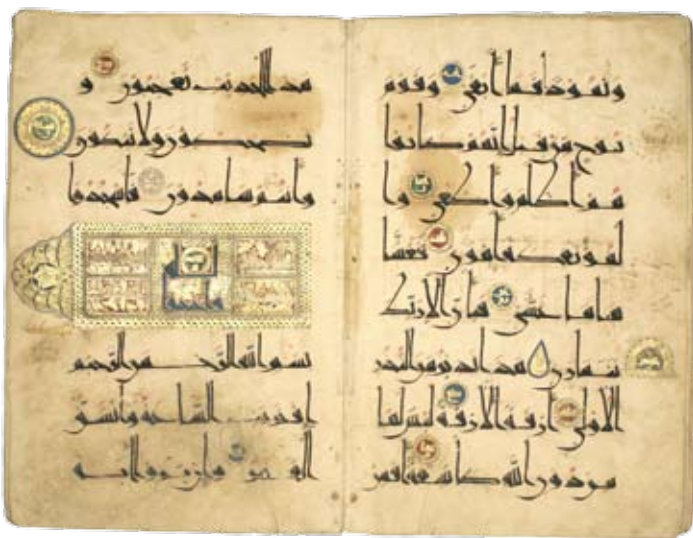 وثمودا فما أبقى وقوم
نوح من قبل إنهم كانوا
هم أظلم وأطغى وا
لمؤتفكة أهوى فغشا
ها ما غشى فبأي آلاء ربك
تتمارى هذا نذير من النذر
الأولى أزفت الآزفة ليس لها
من دون الله كاشفة أفمن
هذا الحديث تعجبون و
تضحكون ولا تبكون
وأنتم سامدون فاسجدوا
لله
واعبدوا
بسم الله الرحمن الرحيم
اقتربت الساعة وانشق
القمر وإن يروا آية